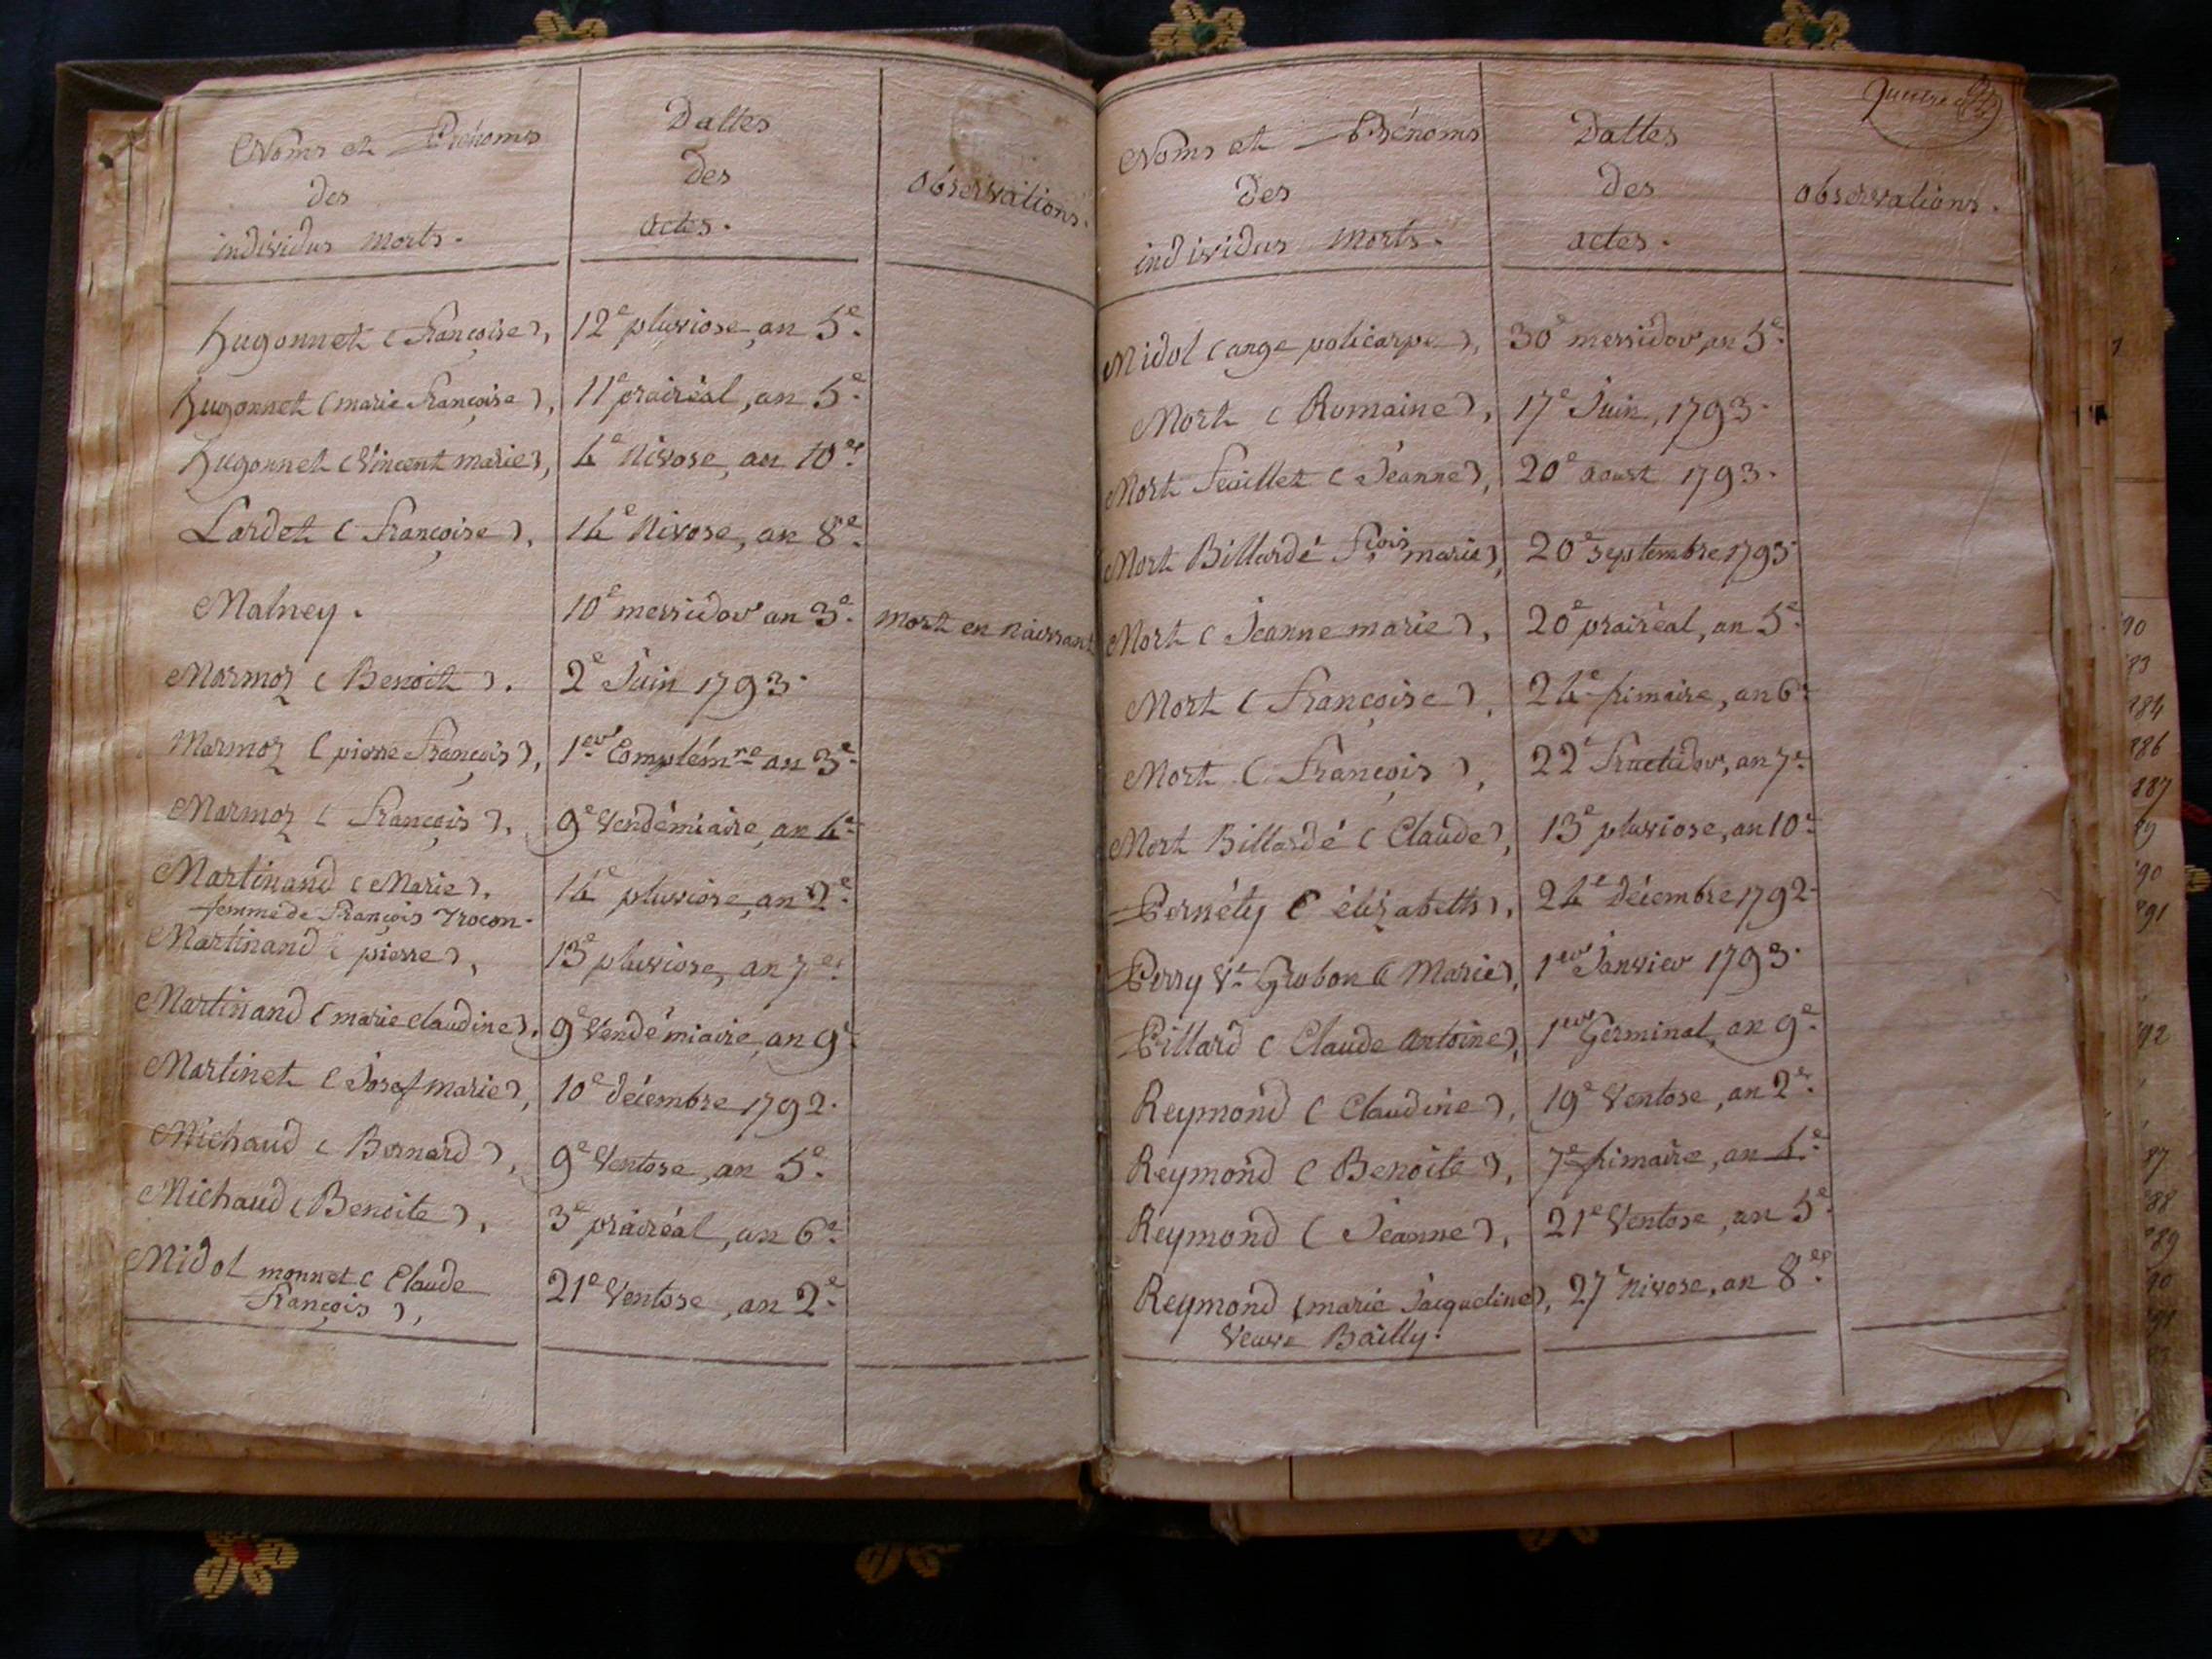 Noms et Prénoms
des
individus morts.
Dattes
des
actes.
observations.
hugonnet (françoise), 12e pluviose, an 5e.
hugonnet (marie françoise), 11e prairéal, an 5e.
hugonnet (Vincent marie), 4e Nivose, an 10e.
Lardet (françoise), 14e Nivose, an 8e.
Malney. 10e messidor an 3e. mort en naissant
Marmoz (Benoit). 2e Juin 1793.
Marmoz (pierre françois), 1er Complémre an 3e.
Marmoz (françois), 9e Vendémiaire, an 4e.
Martinand (Marie), 14e pluviose, an 2e.
femme de françois Trocon.
Martinand (pierre), 13e pluviose, an 7e.
Martinand (marie claudine), 9e Vendémiaire, an 9e.
Martinet (Josef marie), 10e décembre 1792.
Michaud (Bernard), 9e Ventose, an 5e.
Michaud (Benoite), 3e prairéal, an 6e.
Midol monnet (Claude
françois), 21e Ventose, an 2e.
Noms et Prénoms
des
individus morts.
Dattes
des
actes.
observations.
Midol (ange policarpe), 30e messidor, an 5e.
Mort (Romaine), 17e Juin, 1793.
Mort feuillet (Jeanne), 20e aoust 1793.
Mort Billardé fçois marie), 20e septembre 1793.
Mort (Jeanne marie), 20e prairéal, an 5e.
Mort (françoise), 24e frimaire, an 6e.
Mort (françois), 22e fructidor, an 7e.
Mort Billardé (Claude), 13e pluviose, an 10e.
Pernéty (élizabeth), 24e Décembre 1792.
Perry Ve Grobon (Marie), 1er Janvier 1793.
Pillard (Claude antoine), 1er Germinal, an 9e.
Reymond (Claudine), 19e Ventose, an 2e.
Reymond (Benoite), 7e frimaire, an 4e.
Reymond (Jeanne), 21e Ventose, an 5e.
Reymond (marie Jacqueline), 27e Nivose, an 8e.
Veuve Bailly.